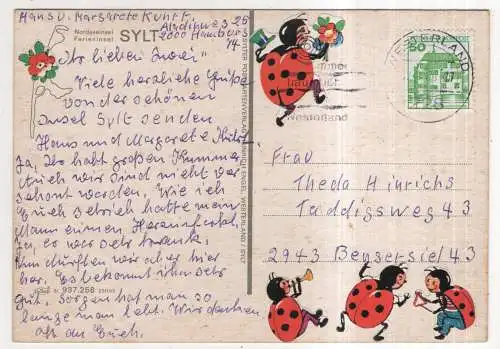 Hans u. Margarete
2000 Hamburg
74
Nordseeinsel
Ferieninsel SYLT
Ihr lieben Zwei
Viele herzliche Grüße
von der schönen
Insel Sylt senden
Hans und Margarete
Ja, Ihr habt großen Kummer
Auch wir sind nicht ver
schont worden. Wie ich
Euch schrieb hatte mein
Mann einen Herzinfarkt
Ja, er war sehr krank,
nun dürften wir aber hier
her. Es bekommt ihm sehr
gut. Sorgen hat man so
lange man lebt. Wir denken
oft an Euch.
997.258
WESTERLAND
50
Westerland
Frau
Theda Hinrichs
Taddigsweg 43
2943 Bensersiel 43